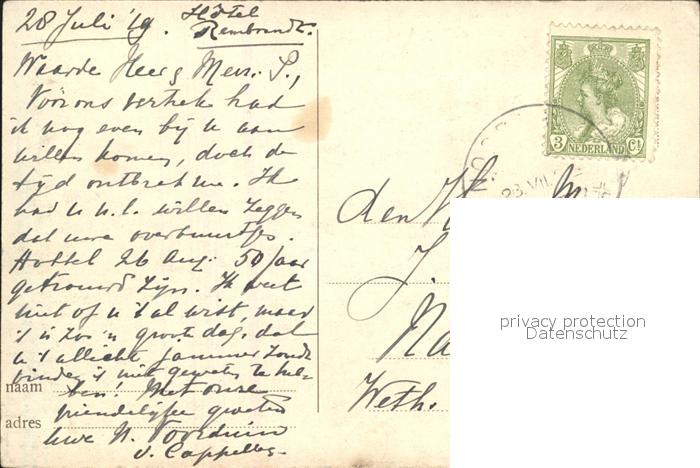 28 Juli '19. Hôtel
Rembrandt.
Waarde Heer & Mevr. S.,
Vóór ons vertrek had
ik nog even bij u aan
willen komen, doch de
tijd ontbrak me. Ik
had u n.l. willen zeggen
dat uwe overbuurtjes
26 Aug. 50 jaar
getrouwd zijn. Ik weet
niet of u 't al wist, maar
't is zoo'n groote dag, dat
u 't allicht jammer zoudt
vinden 't niet geweten te heb-
naam ben! Met onze
vriendelijke groeten
adres Uwe N. Voorduin
v. Cappelle
3 Ct
NEDERLAND
28.VII
den
J.
Na
Weth.
privacy protection
Datenschutz